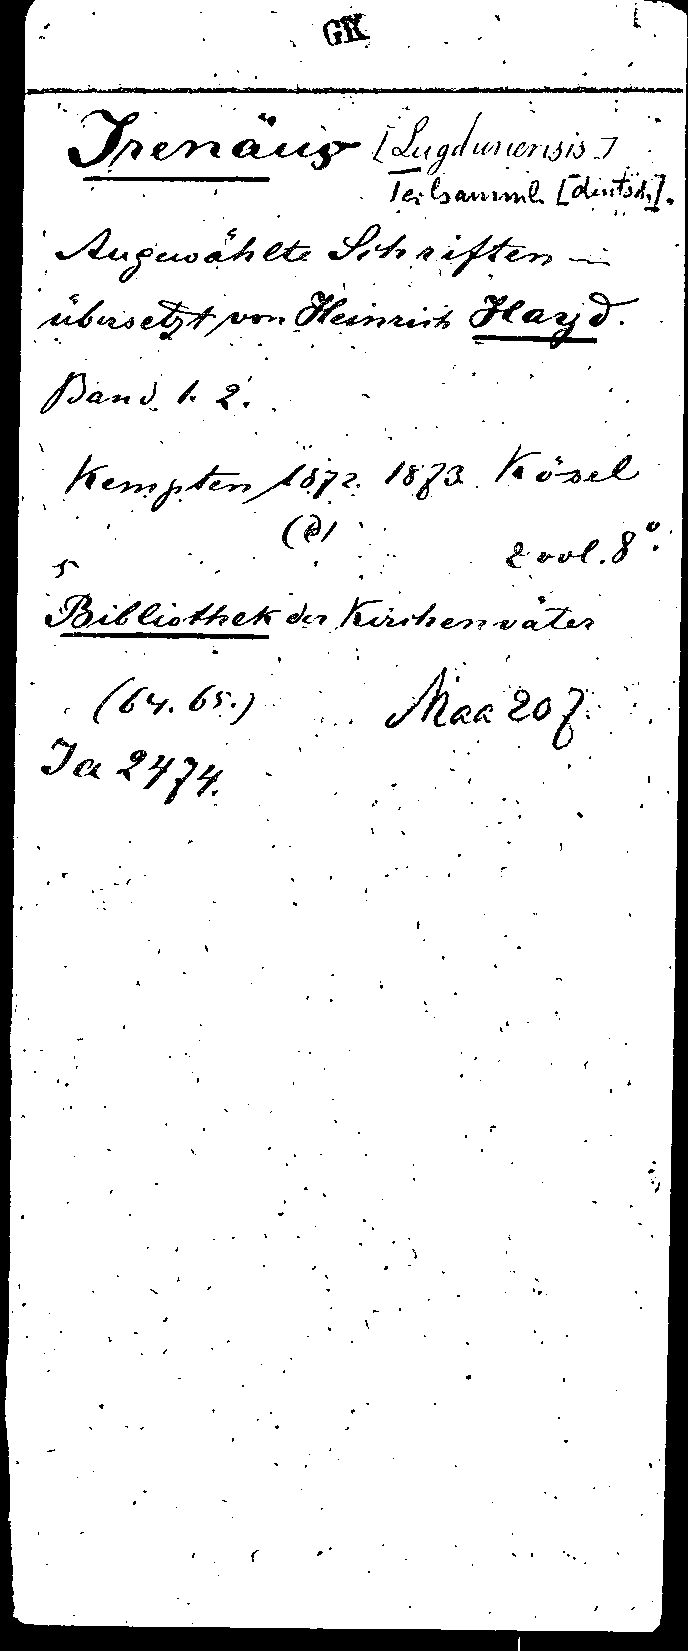 GK
Irenäus [Lugdunensis]
Teilsamml. [deutsch].
Ausgewählte Schriften
übersetzt von Heinrich Hayd.
Band 1. 2.
Kempten 1872. 1873. Kösel
2 vol. 8°.
Bibliothek der Kirchenväter
(64. 65.) Maa 207
Ia 2474.